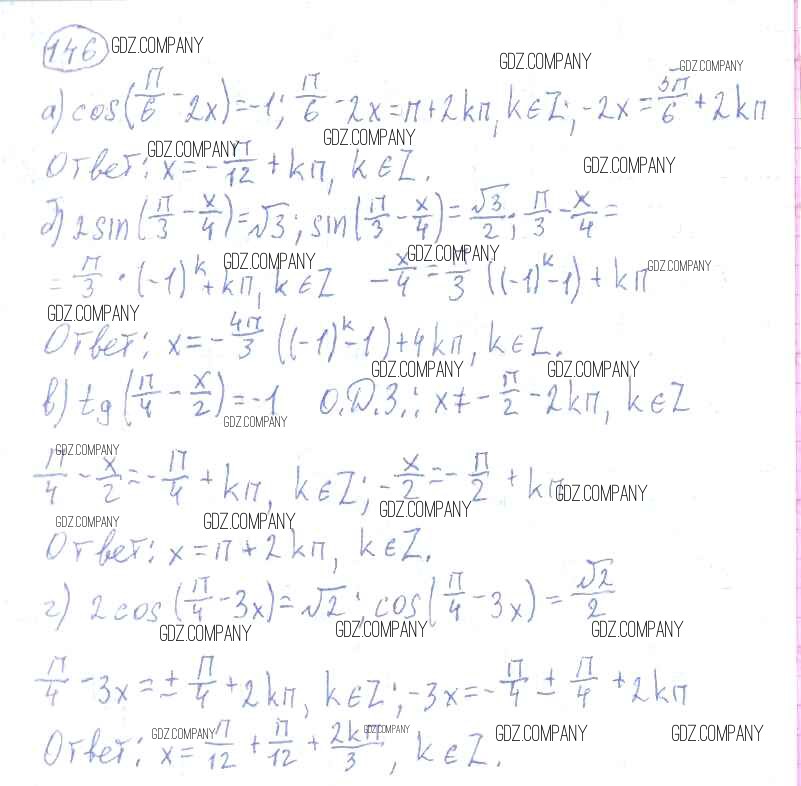 146 GDZ.COMPANY GDZ.COMPANY GDZ.COMPANY
а) cos(π/6 - 2x) = -1; π/6 - 2x = π + 2kπ, k∈Z; -2x = 5π/6 + 2kπ
GDZ.COMPANY GDZ.COMPANY GDZ.COMPANY
Ответ: x = -π/12 + kπ, k∈Z.
б) 2sin(π/3 - x/4) = √3; sin(π/3 - x/4) = √3/2; π/3 - x/4 =
GDZ.COMPANY GDZ.COMPANY GDZ.COMPANY
= π/3 · (-1)^k + kπ, k∈Z -x/4 = π/3 ((-1)^k - 1) + kπ
GDZ.COMPANY
Ответ: x = -4π/3 ((-1)^k - 1) + 4kπ, k∈Z.
GDZ.COMPANY GDZ.COMPANY
в) tg(π/4 - x/2) = -1 О.Д.З.: x ≠ -π/2 - 2kπ, k∈Z
GDZ.COMPANY
GDZ.COMPANY
π/4 - x/2 = -π/4 + kπ, k∈Z; -x/2 = -π/2 + kπ
GDZ.COMPANY GDZ.COMPANY
GDZ.COMPANY GDZ.COMPANY
Ответ: x = π + 2kπ, k∈Z.
г) 2cos(π/4 - 3x) = √2; cos(π/4 - 3x) = √2/2
GDZ.COMPANY GDZ.COMPANY GDZ.COMPANY
π/4 - 3x = ± π/4 + 2kπ, k∈Z; -3x = -π/4 ± π/4 + 2kπ
GDZ.COMPANY GDZ.COMPANY GDZ.COMPANY GDZ.COMPANY
Ответ: x = π/12 + π/12 + 2kπ/3, k∈Z.